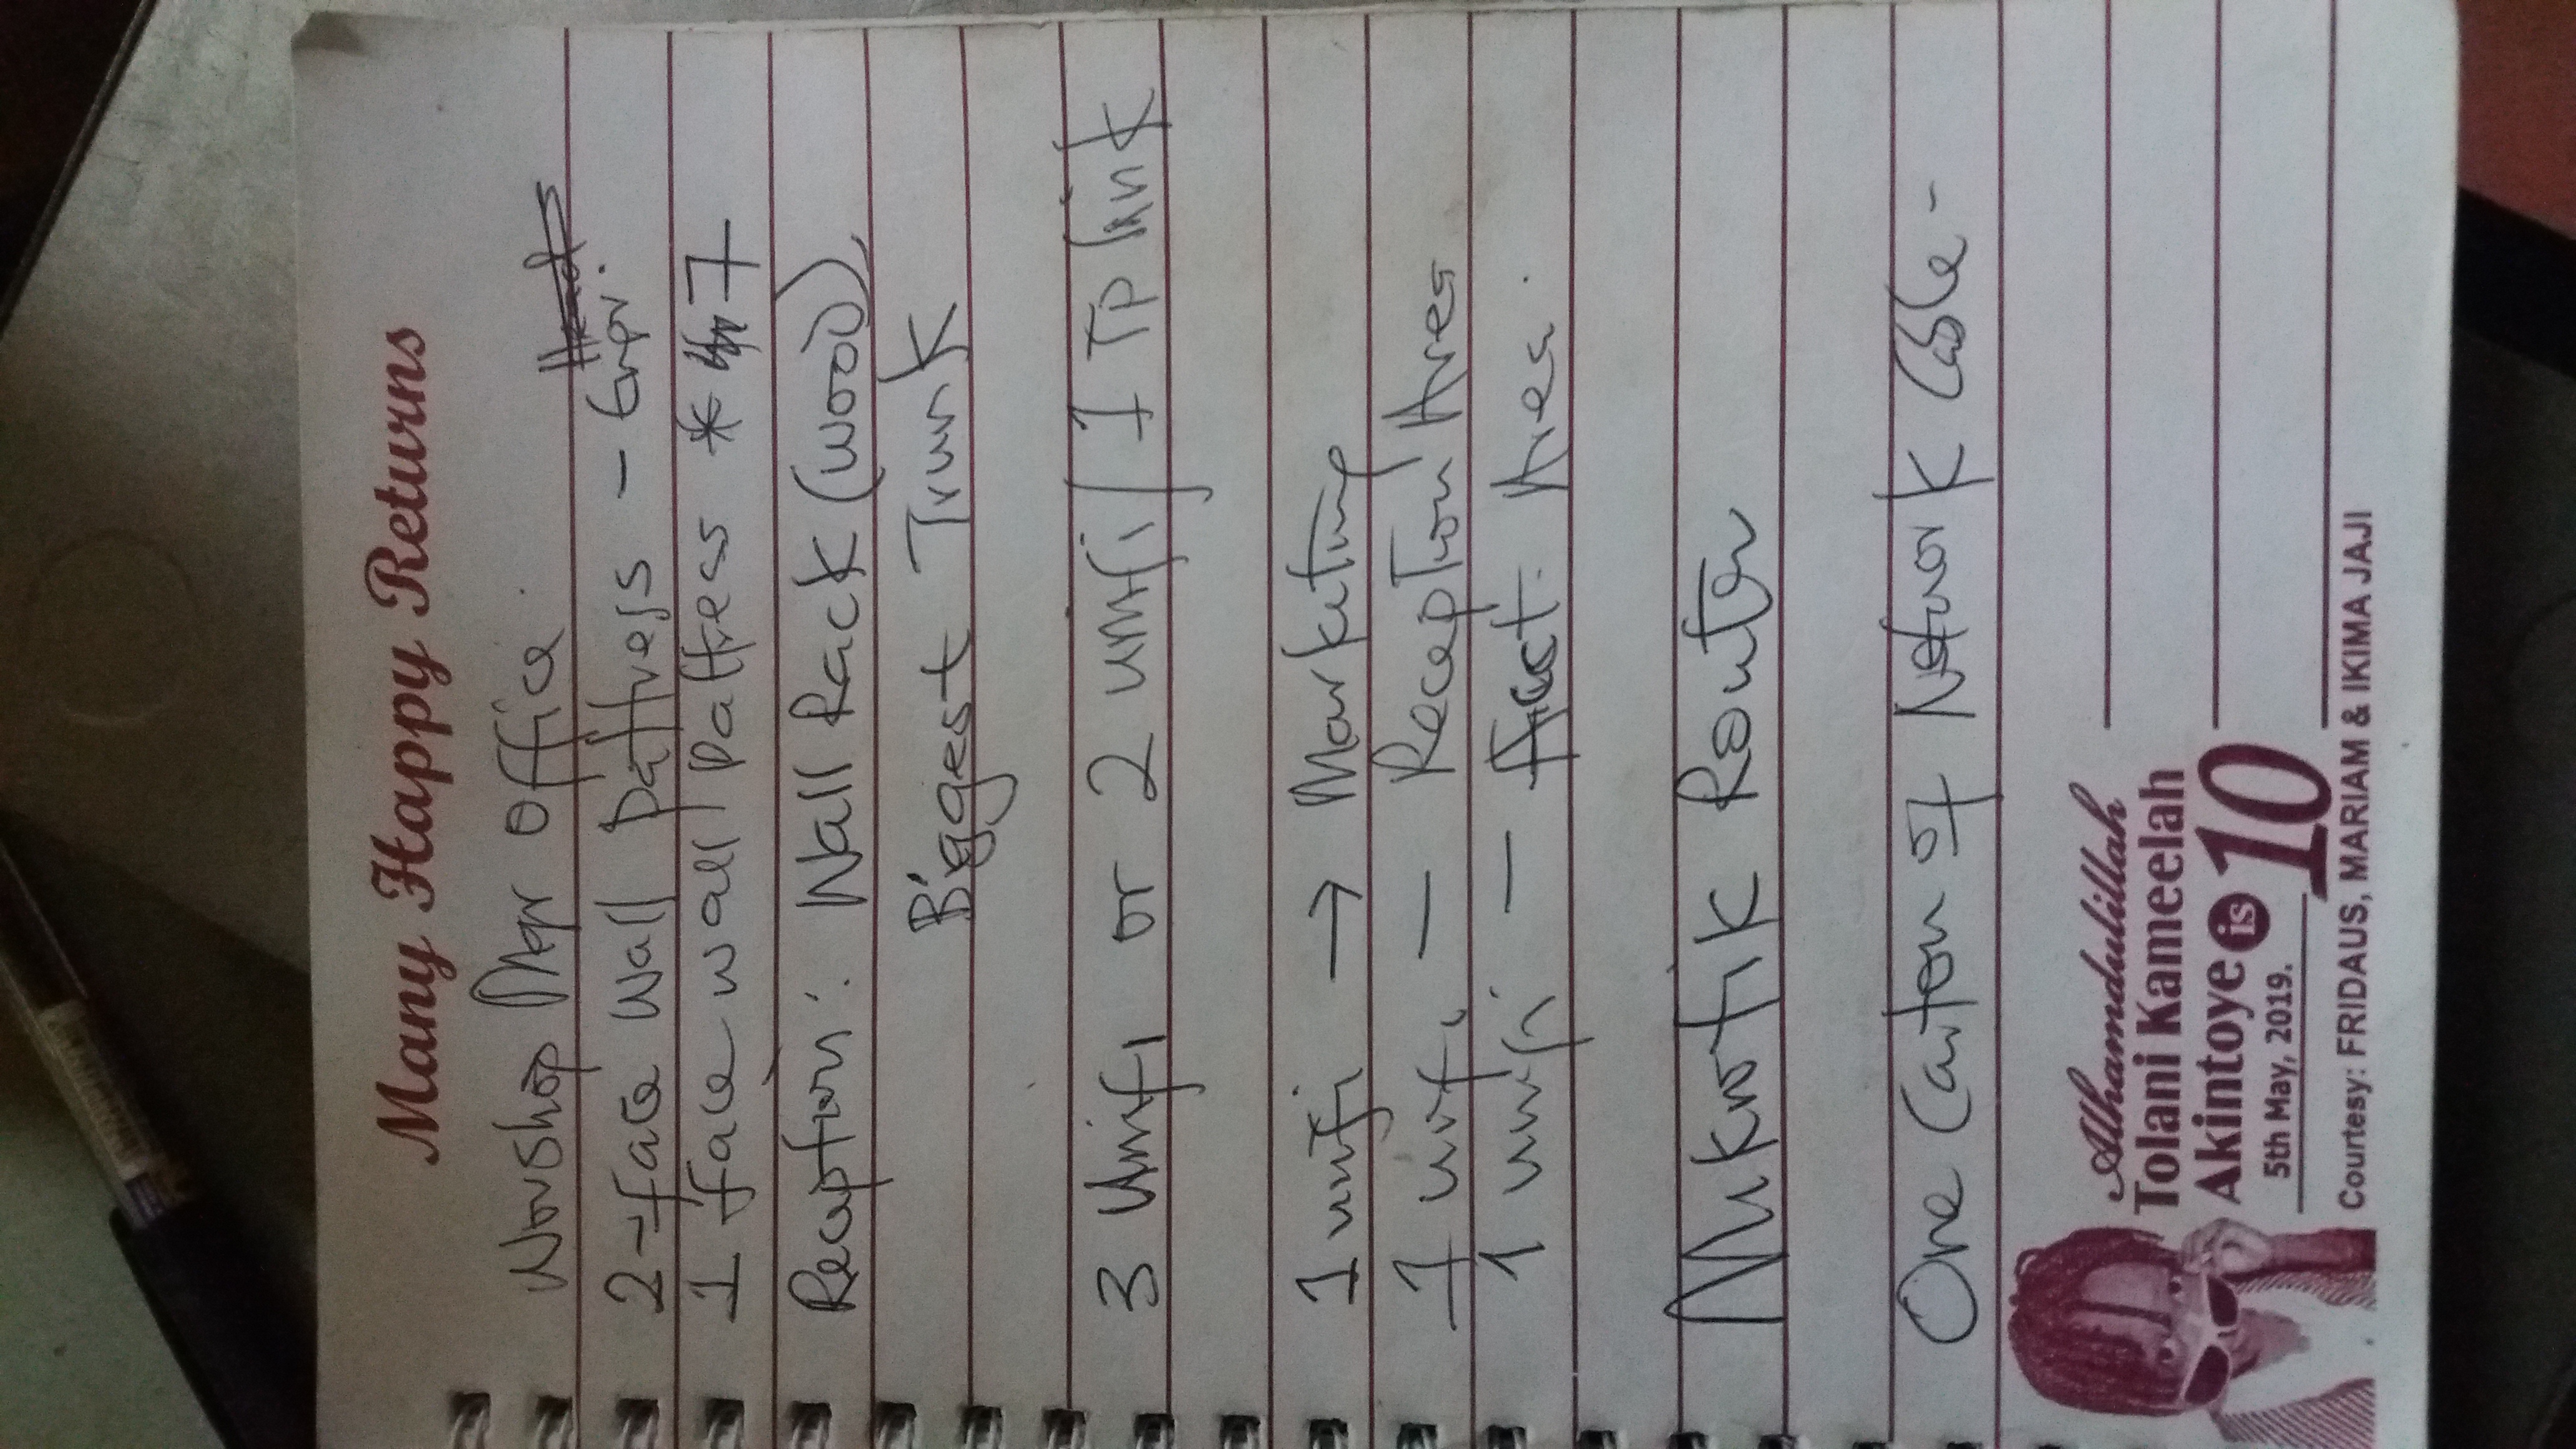 Many Happy Returns
Worshop Mgr Office
2-face Wall Pattress -
1 face wall Pattress * 7
Reception: Wall Rack (wood),
Biggest Trunk
3 Unifi or 2 unifi / 1 TP link
1 unifi → Marketing
1 unifi — Reception Area
1 unifi — Acct. Area.
Mikrotik Router
One Carton of Network Cable -
Alhamdulillah
Tolani Kameelah
Akintoye is 10
5th May, 2019.
Courtesy: FRIDAUS, MARIAM & IKIMA JAJI